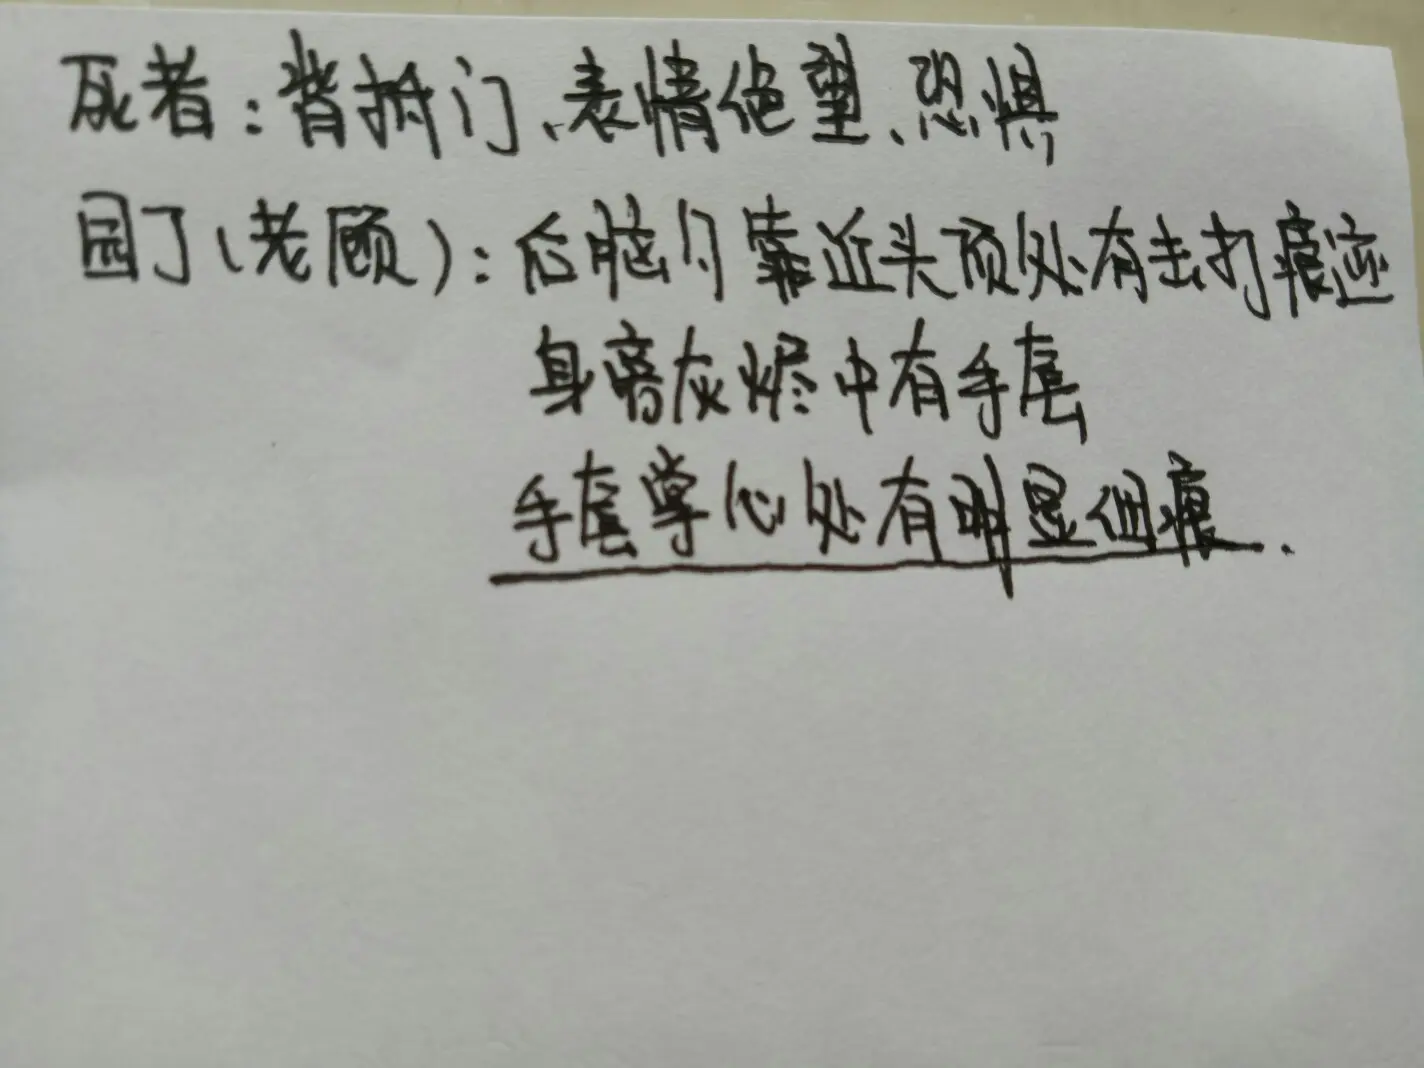 死者：背抵门、表情绝望、恐惧
园丁（老顾）：后脑勺靠近头顶处有击打痕迹
身旁灰烬中有手套
手套掌心处有明显细痕.